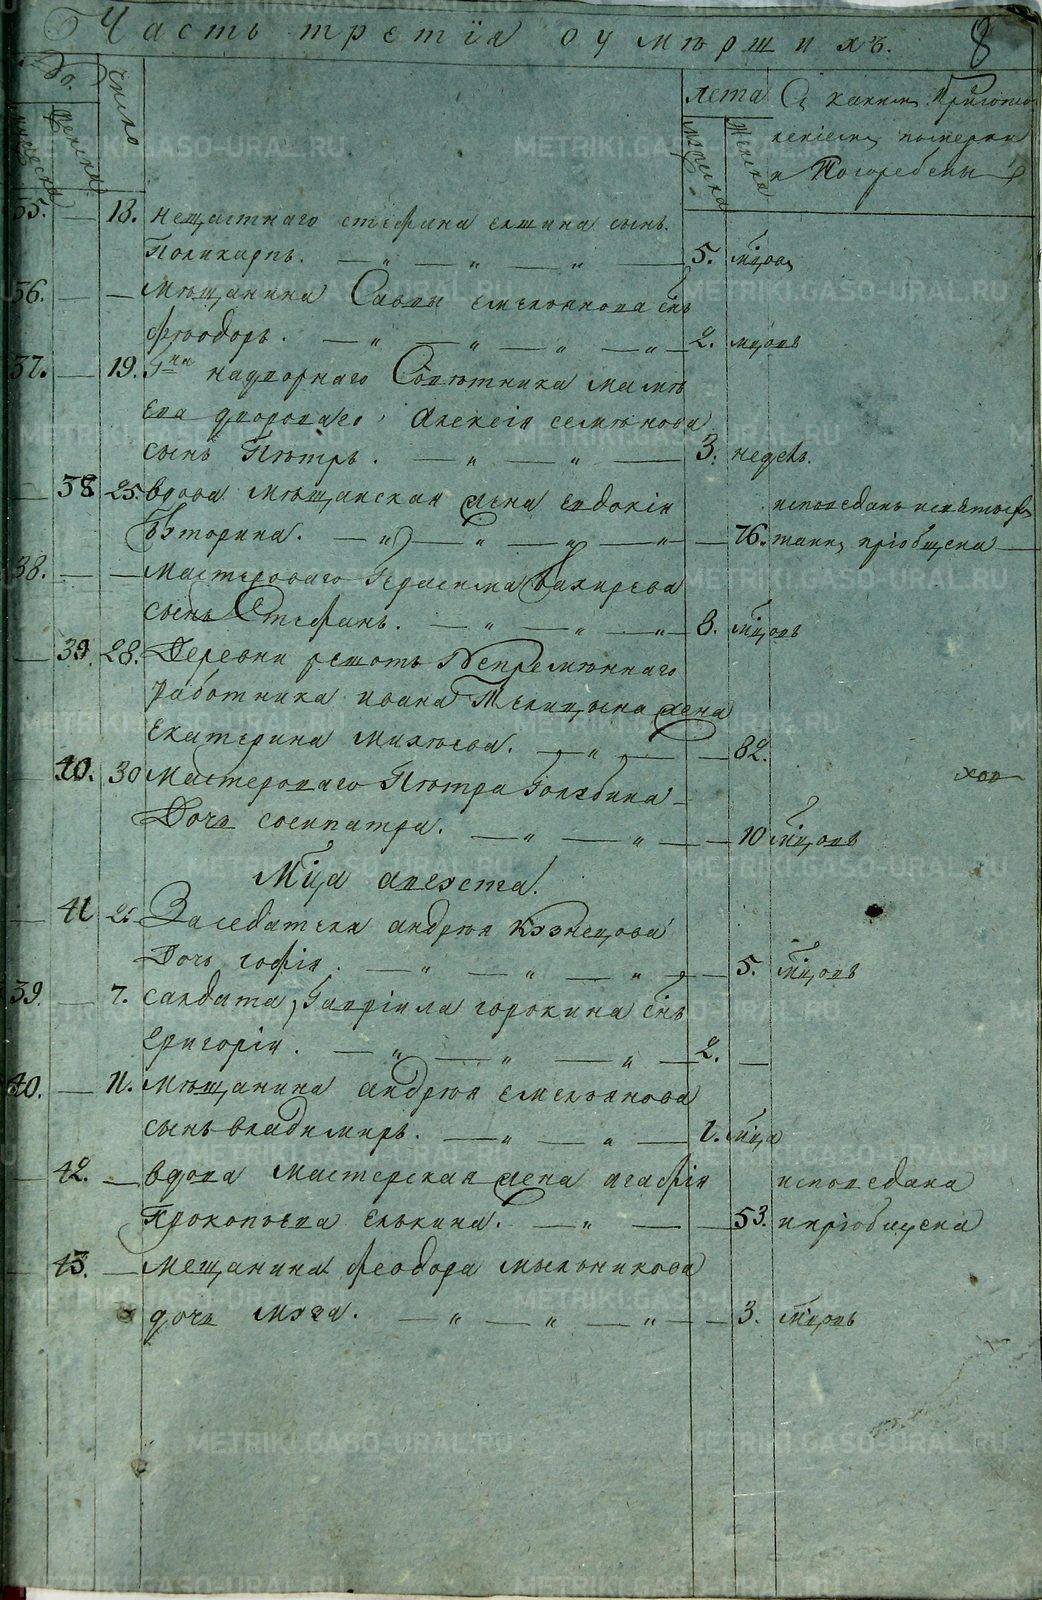 Часть третїя оумѣршихъ. 8
№.
мужеска
женска
число
лета
мужеска
женска
С каким Приготов
лениемъ померли
и Погребены
35. — 18. нещастнаго стефана елшина сынъ
Поликарпъ. 5. мцов
36. — — Мѣщанина Савы емельянова снъ
феодоръ. 2. мцовъ
37. — 19. Гна надворнаго Совѣтника мамѣ
ева двороваго Алексѣя семѣнова
сынъ Пѣтръ. 3. недель.
— 38 25. вдова мѣщанская жена евдокія
Вторина. 76.
исповедань
таинъ пріобщена
38. — — Мастероваго Герасима Вахирева
сынъ Стефанъ. 8. мцовъ
— 39. 28. Деревни решотъ Непремѣннаго
работника ивана Телицына жена
Екатерина михѣева. 82.
— 40. 30 Мастероваго Пѣтра Голубина
Дочь сосипатра. 10 мцовъ
Мца августа.
— 41 2. Заседателя андрѣя Кузнецова
Дочь софія. 5. мцовъ
39. — 7. салдата Гавріила горокина снъ
григорій. 2. —
40. — 11. Мѣщанина андрѣя емельянова
сынъ владимиръ. 1. мца
— 42. — вдова мастерская жена агафія
Прокопьева елькина. 53.
исповедана
и пріобщена
— 43. — мещанина феодора мыльникова
дочь Муза. 3. мцовъ
METRIKI.GASO-URAL.RU